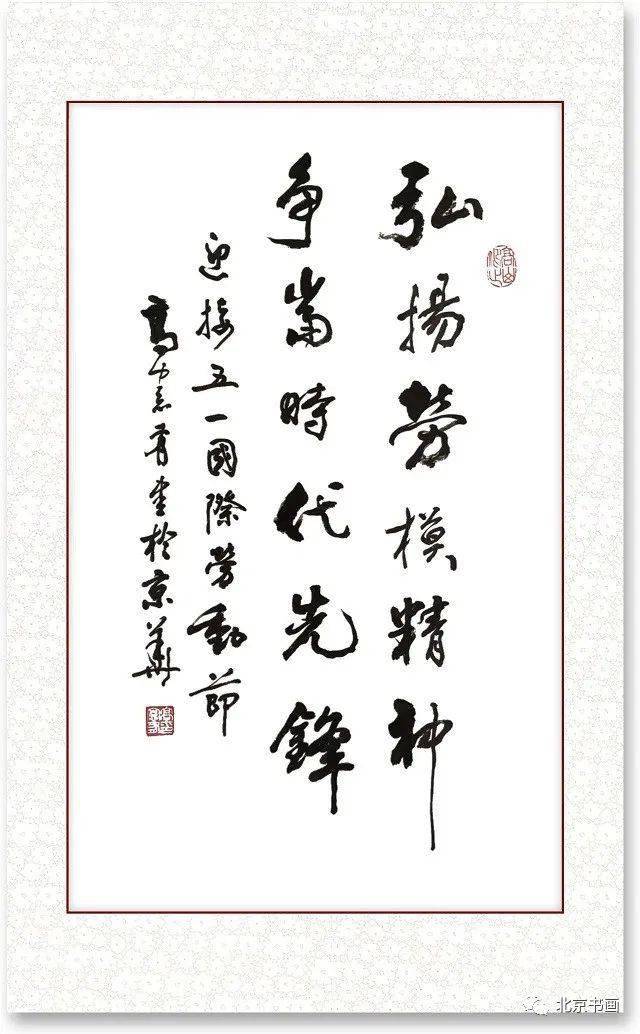 弘揚勞模精神
争當時代先鋒
迎接五一國際勞動節
高 書於京華
北京书画